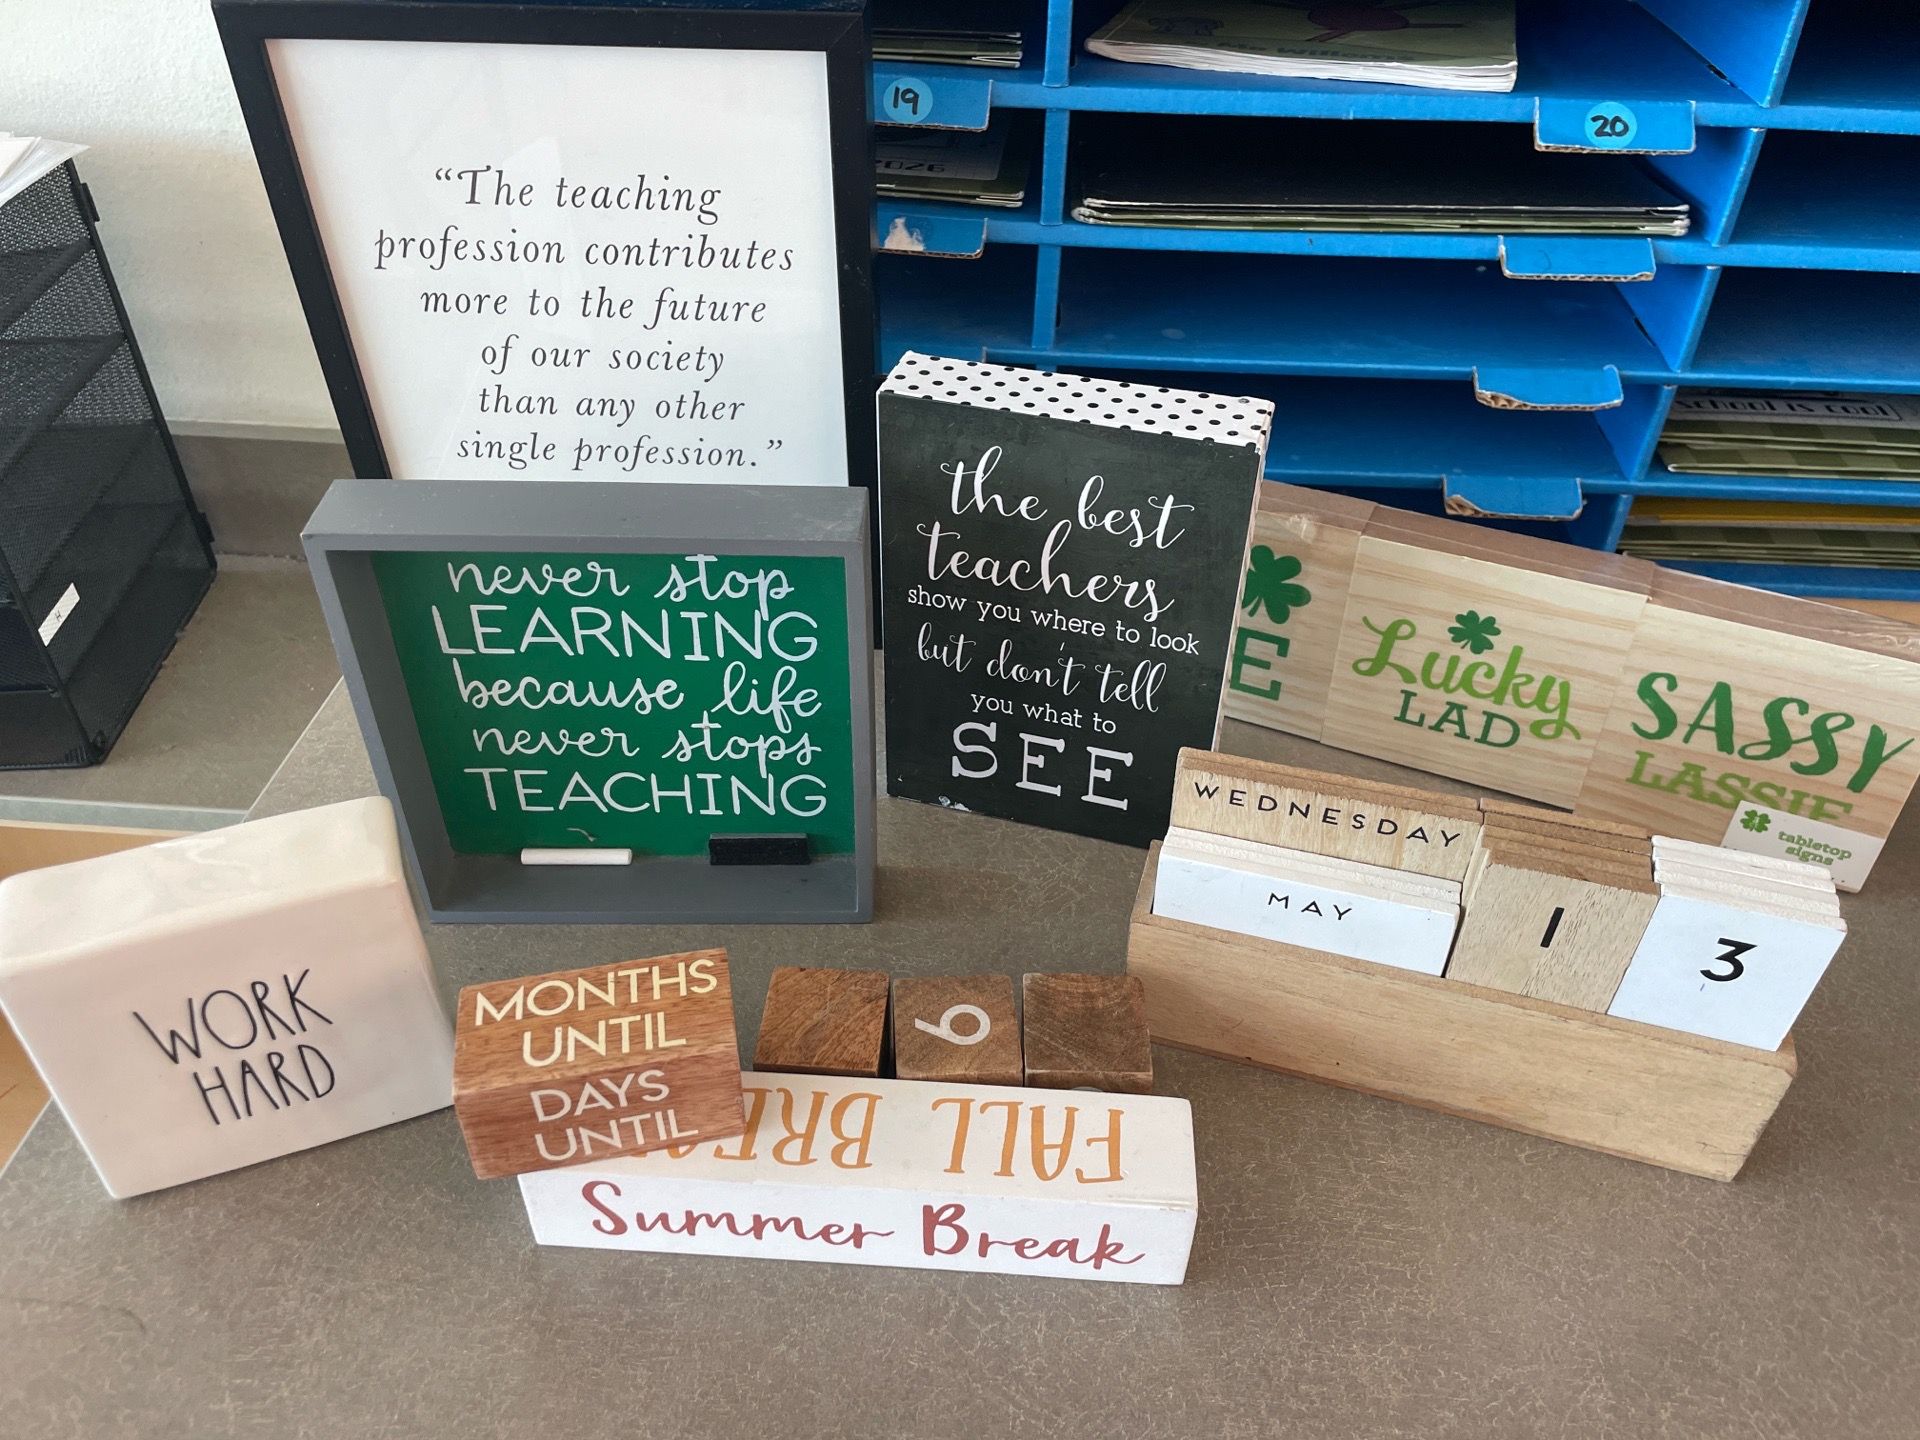 19
20
2026
SCHOOL IS COOL
"The teaching
profession contributes
more to the future
of our society
than any other
single profession."
never stop
LEARNING
because life
never stops
TEACHING
the best
teachers
show you where to look
but don't tell
you what to
SEE
E
Lucky
LAD
SASSY
LASSIE
tabletop
signs
WEDNESDAY
MAY
1 3
WORK
HARD
MONTHS
UNTIL
DAYS
UNTIL
6
FALL BREA
Summer Break
H